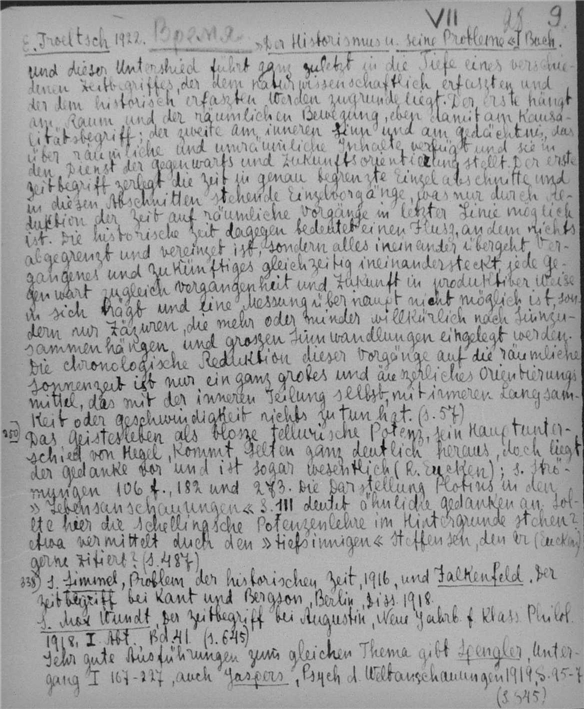 VII 98 9.
E. Troeltsch 1922. Время. „Der Historismus u. seine Probleme“ I Buch.
und dieser Unterschied führt ganz zuletzt in die Tiefe eines verschie-
denen Zeitbegriffes, der dem naturwissenschaftlich erfaszten und
der dem historisch erfaszten Werden zugrunde liegt. Der erste hängt
am Raum und der räumlichen Bewegung, eben damit am Kausa-
litätsbegriff; der zweite am inneren Sinn und am gedächtnis, das
über räumliche und unräumliche Inhalte verfügt und sie in
den Dienst der gegenwarts und Zukunftsorientierung stellt. Der erste
Zeitbegriff zerlegt die Zeit in genau begrenzte Einzelabschnitte und
in diesen Abschnitten stehende Einzelvorgänge, was nur durch Re-
duktion der Zeit auf räumliche Vorgänge in letzter Linie möglich
ist. Die historische Zeit dagegen bedeutet einen Flusz, an dem nichts
abgegrenzt und vereinzelt ist, sondern alles ineinander übergeht Ver-
gangenes und Zukünftiges gleichzeitig ineinandersteckt, jede ge-
genwart zugleich vergangenheit und Zukunft in produktiver Weise
in sich trägt und eine Messung überhaupt nicht möglich ist, son-
dern nur Zäzuren, die mehr oder minder willkürlich nach Sinnzu-
sammenhängen und groszen Sinnwandlungen eingelegt werden.
Die chronologische Reduktion dieser Vorgänge auf die räumliche
Sonnenzeit ist nur ein ganz grobes und äuszerliches Orientierungs
mittel, das mit der inneren Teilung selbst, mit inneren Langsam-
keit oder geschwindigkeit nichts zu tun hat. (S. 57)
250) Das Geistesleben als blosze tellurische Potenz, sein Hauptunter-
schied von Hegel kommt selten ganz deutlich heraus, doch liegt
der gedanke vor und ist sogar wesentlich (R. Eucken); s. Strö-
mungen 106 f., 182 und 273. Die Darstellung Plotins in den
»Lebensanschauungen« S. 111 deutet ähnliche gedanken an. Sol-
lte hier die Schellingsche Potenzenlehre im Hintergrunde stehen?
etwa vermittelt durch den »tiefsinnigen« Steffensen, den er (Eucken)
gerne zitiert? (S. 487)
338) S. Simmel, Problem der historischen Zeit, 1916, und Falkenfeld. Der
Zeitbegriff bei Kant und Bergson, Berlin, Diss. 1918.
S. Max Wundt, Der Zeitbegriff bei Augustin, Neu Jahrb. f Klass. Philol.
1918, I. Abt. Bd. 41 (S. 645)
Sehr gute Ausführungen zum gleichen Thema gibt Spengler, Unter-
gang I 167-227, auch Jaspers, Psych d. Weltanschauungen 1919 S. 95-7
(S 645)